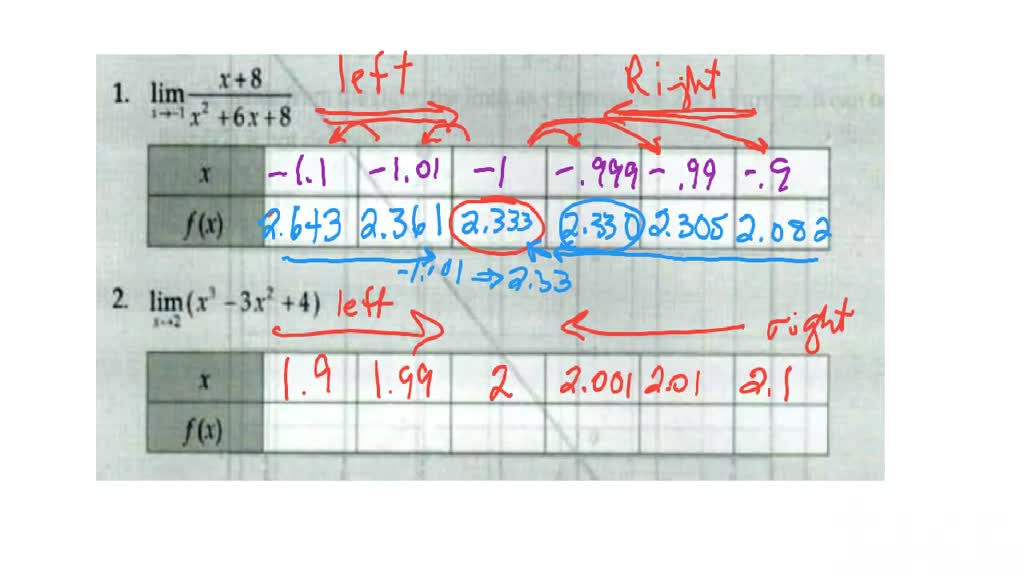 left Right
1. lim x→-1 x+8 / x² +6x+8
x -1.1 -1.01 -1 -.999 -.99 -.9
f(x) 2.643 2.361 2.333 2.330 2.305 2.082
⇒2.33
2. lim x→2 (x³ -3x² +4) left right
x 1.9 1.99 2 2.001 2.01 2.1
f(x)